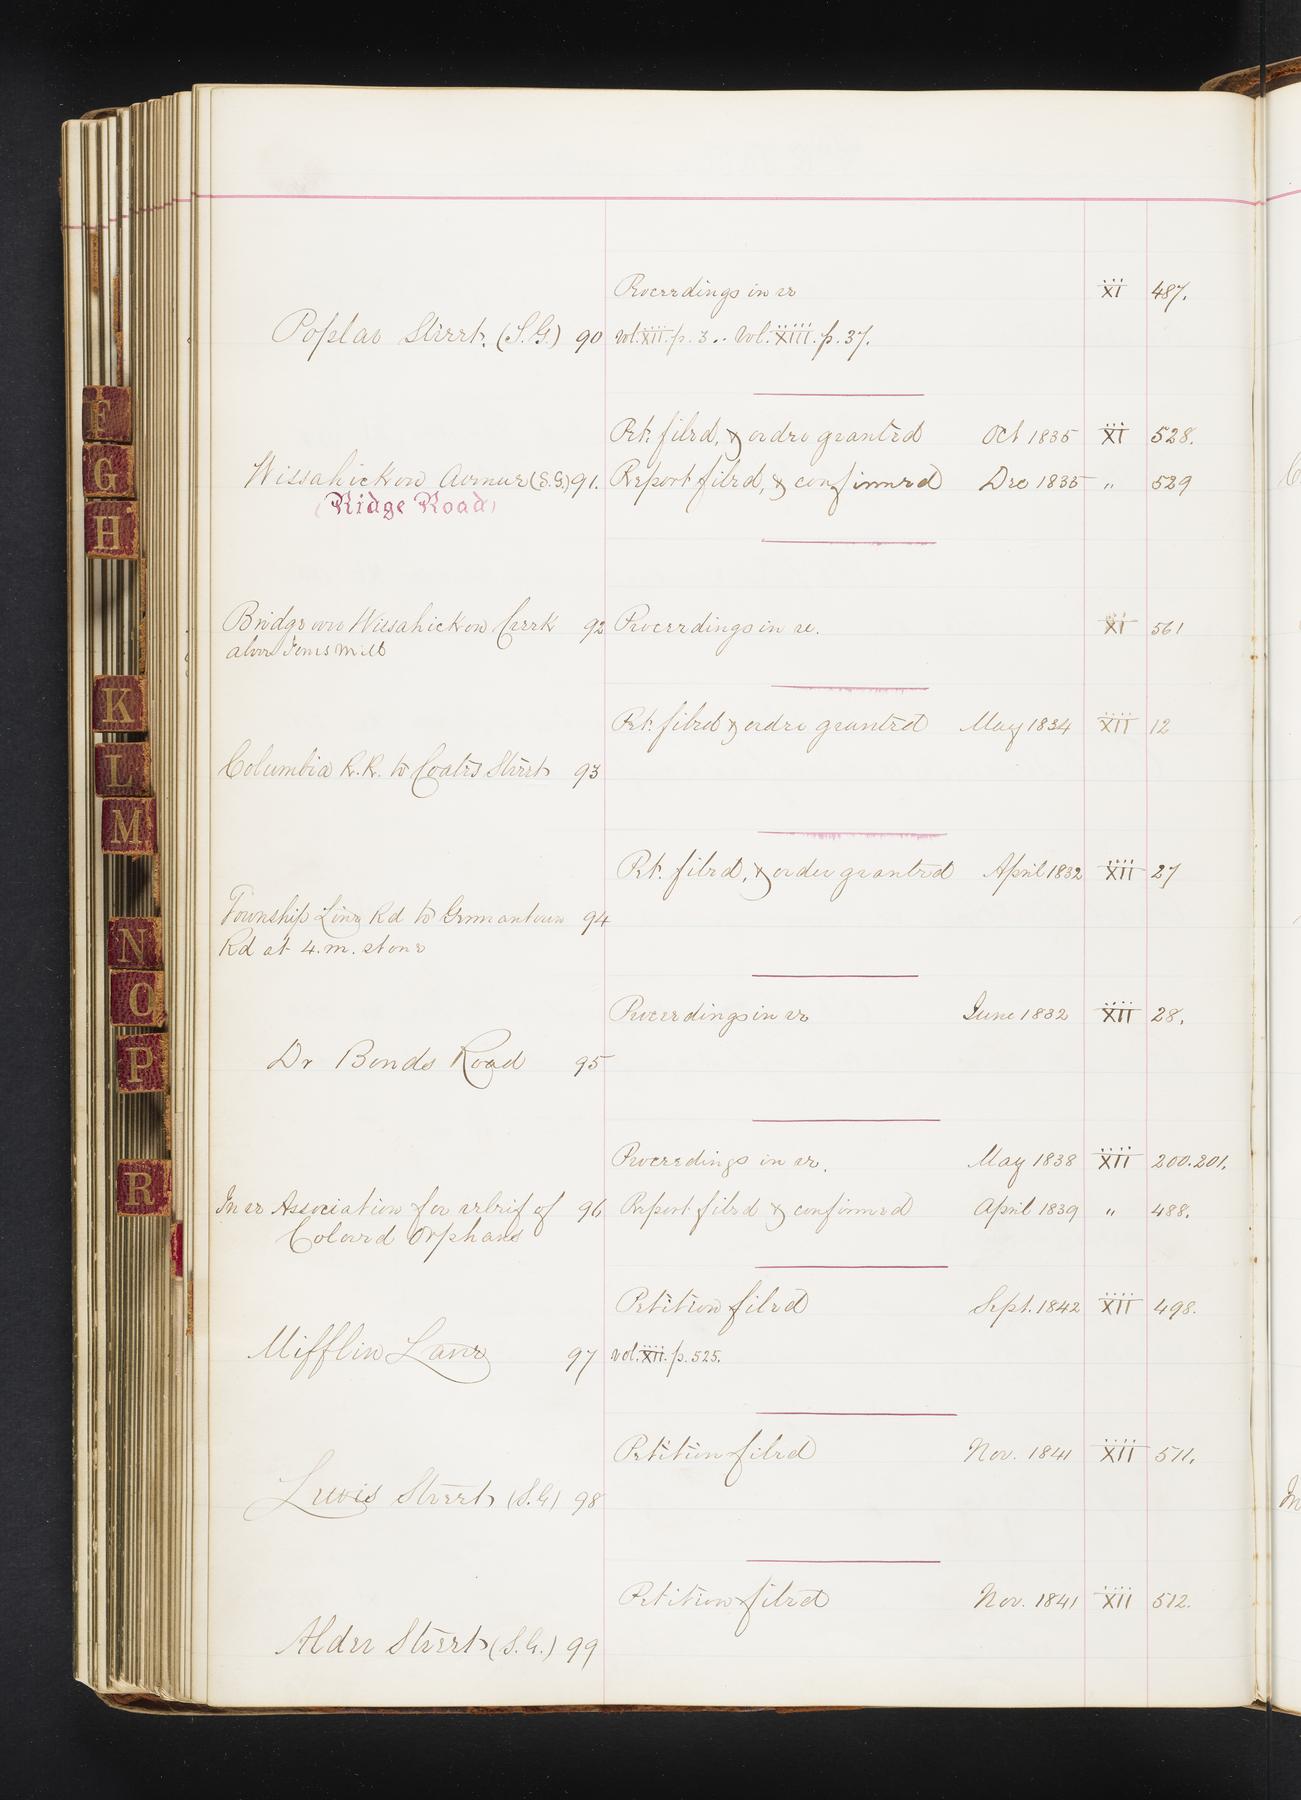 Proceedings in re XI 487.
Poplar Street. (S.G.) 90 vol. XII. p. 3.. vol. XIII. p. 37.
Pet. filed, & order granted Oct 1835 XI 528.
Wissahickon Avenue (S.G.) 91. Report filed, & confirmed Dec 1835 " 529
(Ridge Road)
Bridge over Wissahickon Creek 92 Proceedings in re. XI 561
above Mill
Pet. filed & order granted May 1834 XII 12
Columbia R.R. to Coates Street 93
Pet. filed, & order granted April 1832 XII 27
Township Line Rd to Germantown 94
Rd at 4. m. stone
Proceedings in re June 1832 XII 28.
Dr Bonds Road 95
Proceedings in re. May 1838 XII 200.201.
In re Association for relief of 96 Report filed & confirmed April 1839 " 488.
Colored Orphans
Petition filed Sept. 1842 XII 498.
Mifflin Lane 97 vol. XII. p. 525.
Petition filed Nov. 1841 XII 511.
Lewis Street (S.G) 98
Petition filed Nov. 1841 XII 512.
Alder Street (S.G.) 99
F
G
H
K
L
M
N
O
P
R